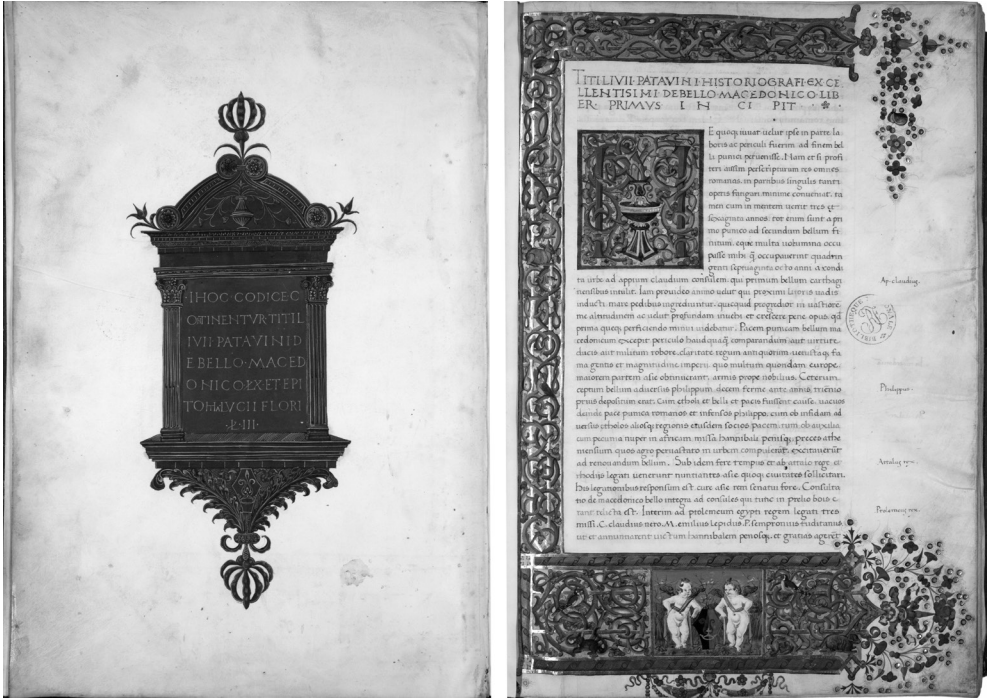 I HOC · CODICE C
OTINENTVR TITI L
IVII · PATAVINI D
E BELLO · MACED
ONICO · LX · ET EPI
TOHA LVCII FLORI
· L · III ·
TITI · LIVII · PATAVINI · HISTORIOGRAFI · EX CE
LLENTISIMI DE BELLO · MACEDONICO · LIB
ER · PRIMVS I N CI PIT ·
E quoq; iuuat uelut ipse in parte la
boris ac periculi fuerim ad finem bel
li punici peruenisse. Nam et si profi
teri ausim perscripturum res omnes
romanas. in partibus singulis tanti
operis fatigari minime conueniat. ta
men cum in mentem uenit tres et
sexaginta annos. tot enim sunt a pri
mo punico ad secundum bellum fi
nitum. eque multa uolumina occu
passe mihi q̃ occupauerint quadrin
genti septuaginta octo anni a condi
ta urbe ad appium claudium consulem. qui primum bellum carthagi
niensibus intulit. Iam prouideo animo uelut qui proximi litoris uadis
inducti mare pedibus ingrediuntur. quicquid progredior in uastiorē
me altitudinem ac uelut profundum inuehi et crescere pene opus. qđ
prima queq; perficiendo minui uidebatur. Pacem punicam bellum ma
cedonicum excepit periculo haud quaq̃ comparandum aut uirtute
ducis aut militum robore. claritate regum antiquorum uetustaq; fa
ma gentis et magnitudine imperii. quo multum quondam europe.
maiorem partem asie obtinuerant. armis prope nobilius. Ceterum
ceptum bellum aduersus philippum decem ferme ante annis. triennio
prius depositum erat. Cum etholi et belli et pacis fuissent cause. uacuos
deinde pace punica romanos et infensos philippo. cum ob infidam ad
uersus etholos aliosq; regionis eiusdem socios pacem. tum ob auxilia
cum pecunia nuper in africam missa hannibali penisq; preces athe
niensium quos agro peruastato in urbem compulerat. excitauerunt
ad renouandum bellum. Sub idem fere tempus et ab attalo rege et
rhodiis legati uenerunt nuntiantes asie quoq; ciuitates sollicitari.
His legationibus responsum est cure eam rem senatui fore. Consulta
tio de macedonico bello integra ad consules qui tunc in prelio bois e
rant reiecta est. Interim ad ptolemeum egypti regem legati tres
missi. C. claudius nero. M. emilius lepidus. P. sempronius tuditanus
ut et annuntiarent uictum hannibalem penosq; et gratias agerēt
Ap. claudius.
Philippus.
Attalus rex.
Ptolameus rex.